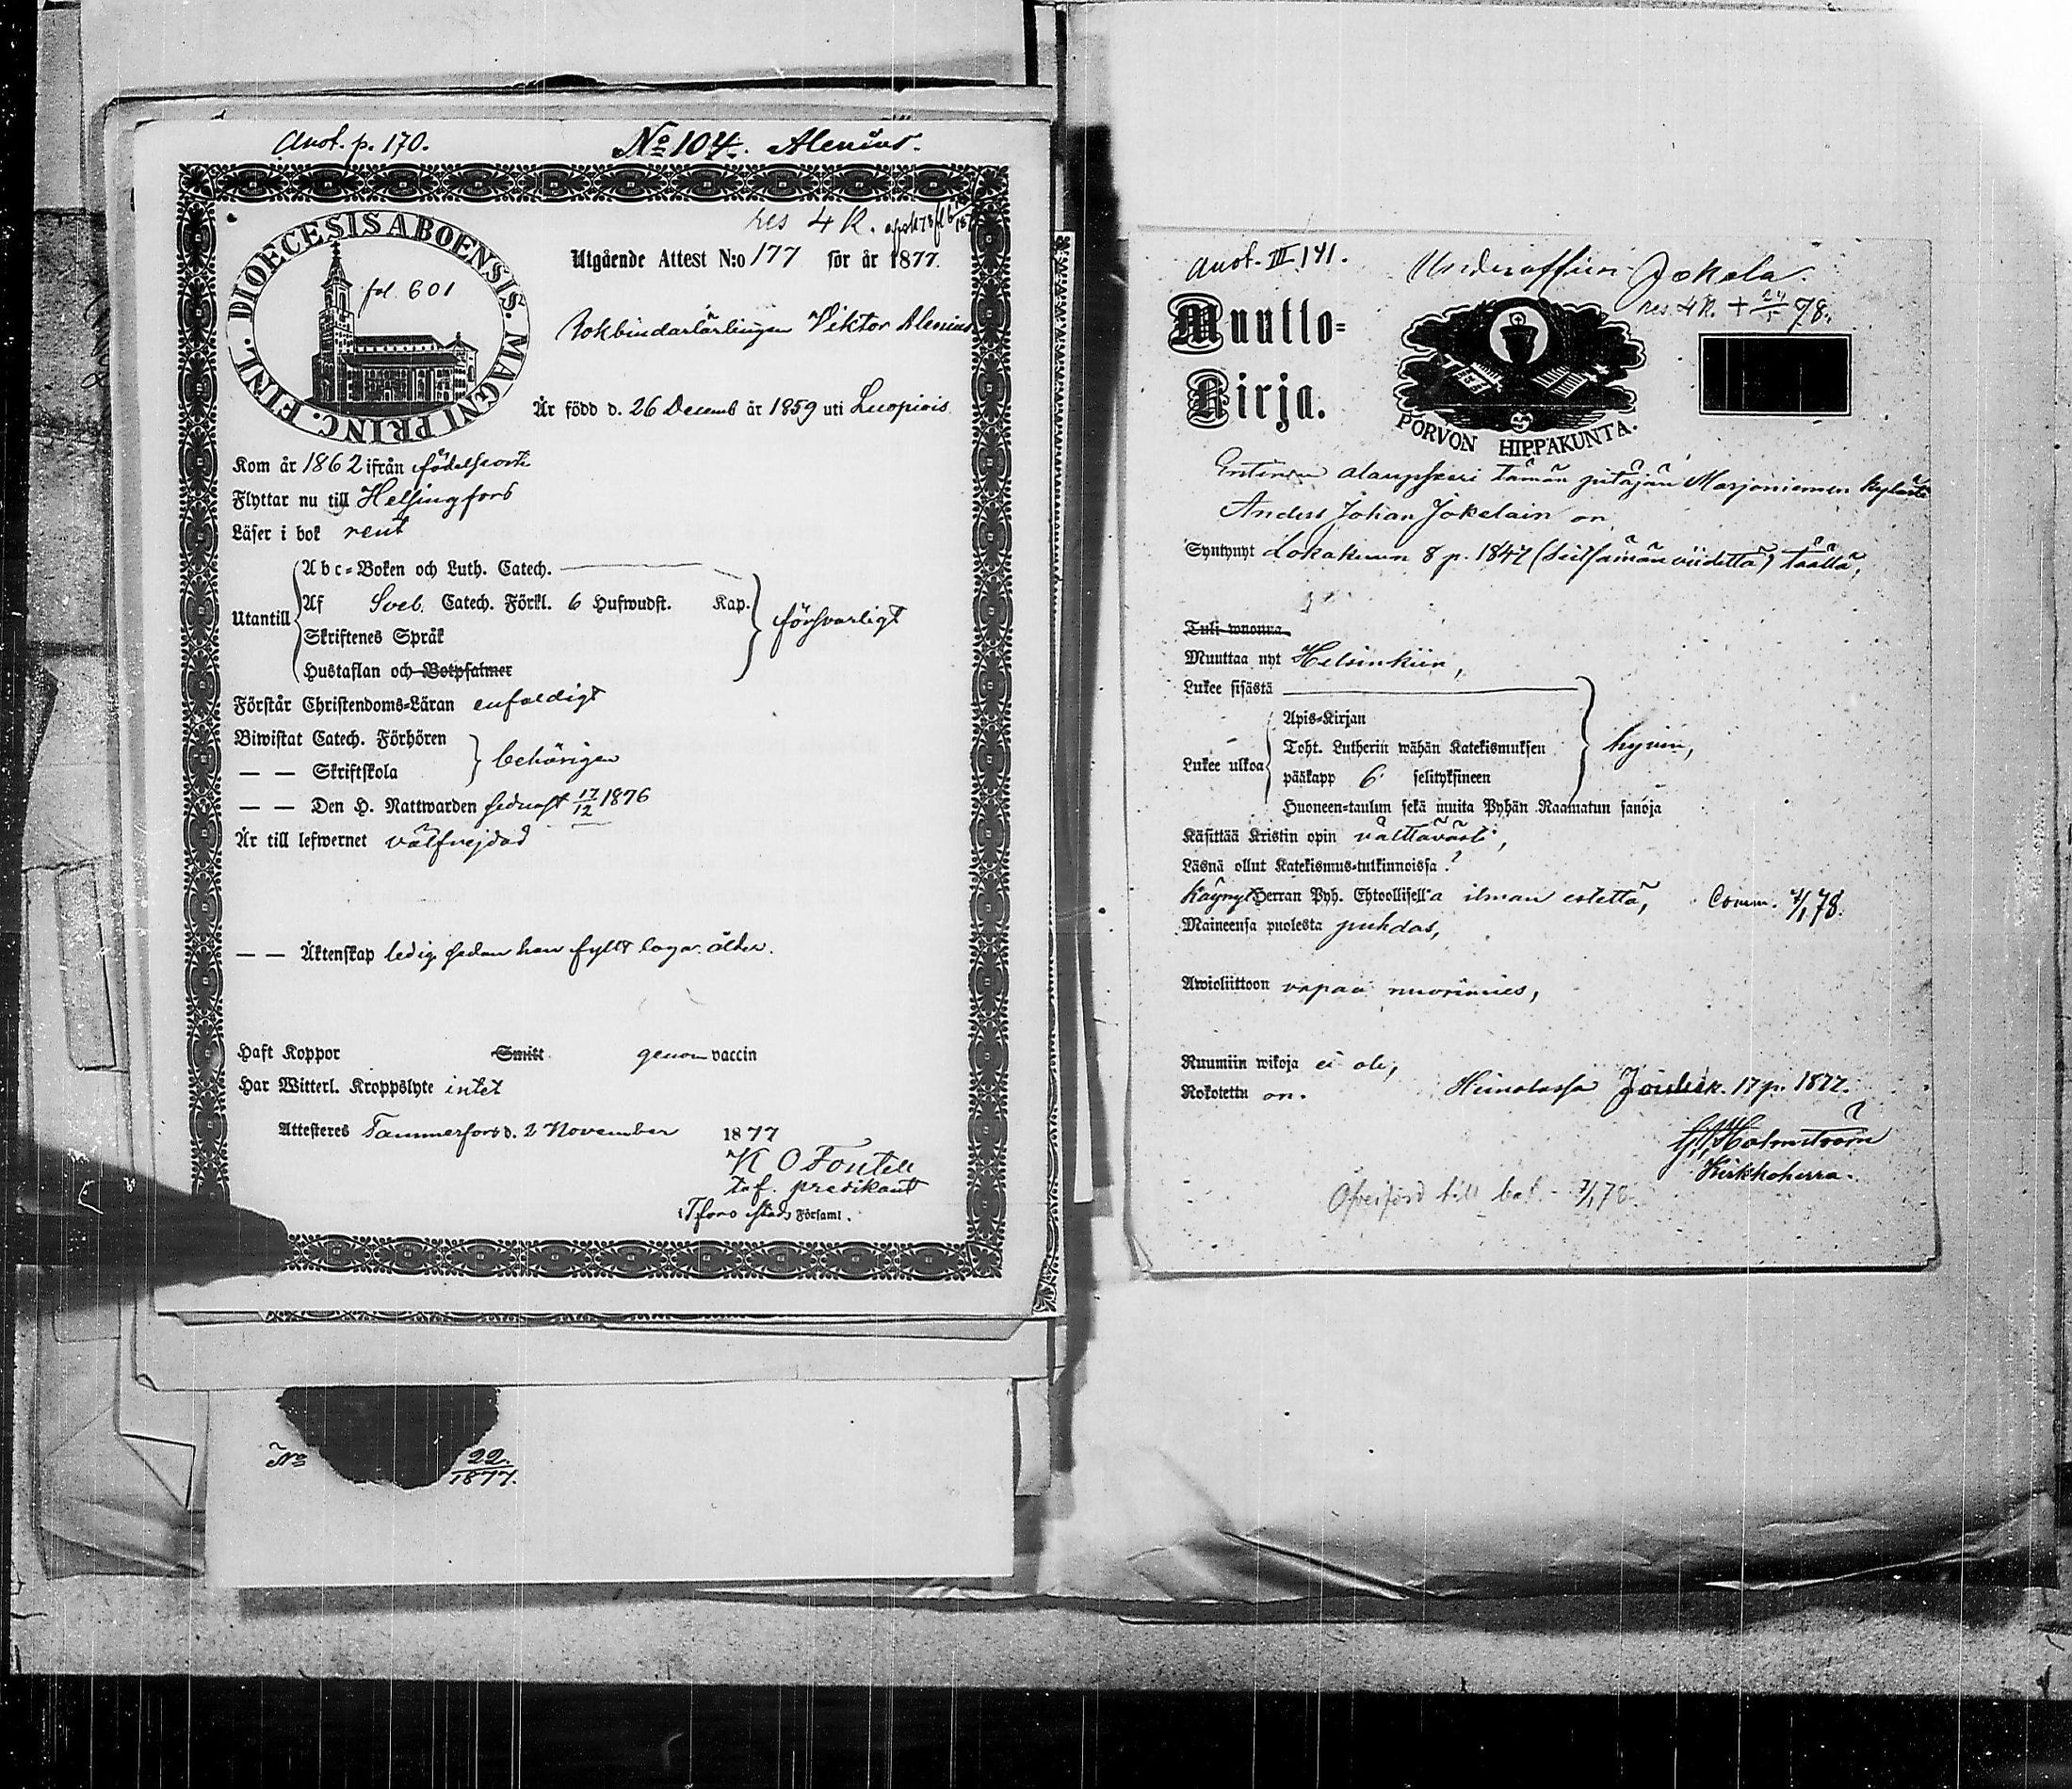 Anot. p. 170.
No 104. Alenius.
DIOECESIS ABOENSIS. MAGNI PRINC. FINL.
fol. 601
res 4 R.
Utgående Attest N:o 177 för år 1877.
Bokbindarlärlingen Viktor Alenius
Är född d. 26 Decemb år 1859 uti Luopiois
Kom år 1862 ifrån födelseort
Flyttar nu till Helsingfors
Läser i bok rent
Abc-Boken och Luth. Catech.
Utantill
Af Sveb. Catech. Förkl. 6 Hufwudst. Kap.
försvarligt
Skriftenes Språk
Hustaflan och Botpsalmer
Förstår Christendoms-Läran enfaldigt
Biwistat Catech. Förhören
— — Skriftskola
behörigen
— — Den H. Nattwarden senast 17/12 1876
Är till lefwernet välfrejdad
— — Äktenskap ledig sedan han fyllt laga ålder.
Haft Koppor Smitt genom vaccin
Har Witterl. Kroppslyte intet
Attesteras Tammerfors d. 2 November 1877
K O Fontell
tjf. predikant
i Tfors stads Församl.
No 22.
1877.
Anot. III 141.
Underofficer Jokela
res. 4 R. + 24/5 78.
Muutto-
Kirja.
PORVON HIPPAKUNTA.
Entinen alaupseeri tämän pitäjän Marjoniemen kylästä
Anders Johan Jokelain on
Syntynyt Lokakuun 8 p. 1847 (seitsemän viidettä) täällä,
Tuli wuonna
Muuttaa nyt Helsinkiin,
Lukee sisästä
Apis-Kirjan
Toht. Lutherin wähän Katekismuksen
Lukee ulkoa
hyvin,
pääkapp 6 selityksineen
Huoneen-taulun sekä muita Pyhän Raamatun sanoja
Käsittää Kristin opin välttävästi,
Läsnä ollut Katekismus-tulkinnoissa ?
Käynyt Herran Pyh. Ehtoollisella ilman estettä,
Comm. 7/1 78.
Maineensa puolesta puhdas,
Awioliittoon vapaa nuorimies,
Ruumiin wikoja ei ole,
Rokotettu on.
Heinolassa Jouluk. 17 p. 1877.
Holmström
Kirkkoherra.
Öfverförd till